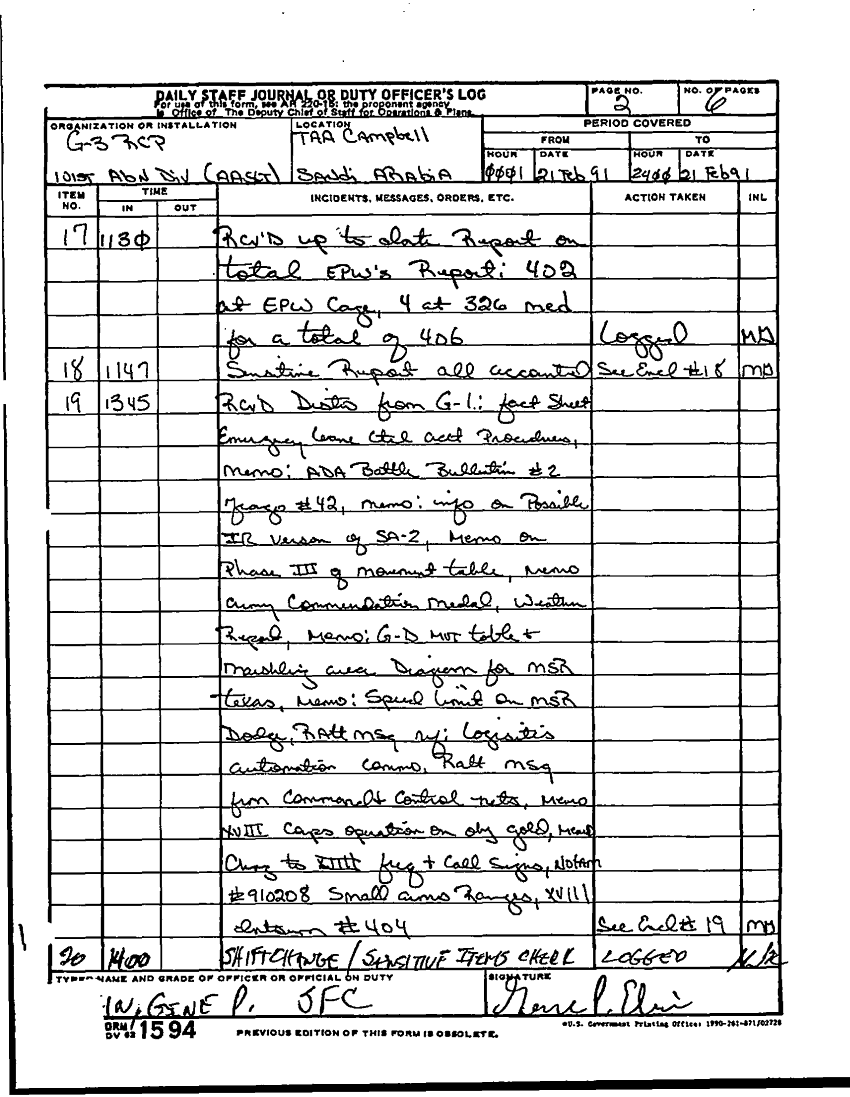 DAILY STAFF JOURNAL OR DUTY OFFICER'S LOG
For use of this form, see AR 220-15; the proponent agency
is Office of The Deputy Chief of Staff for Operations & Plans.
PAGE NO.
2
NO. OF PAGES
6
ORGANIZATION OR INSTALLATION
G-3 RCP
101st Abn Div (AASLT)
LOCATION
TAA Campbell
Saudi Arabia
PERIOD COVERED
FROM
TO
HOUR DATE HOUR DATE
0001 21 Feb 91 2400 21 Feb 91
ITEM NO.
TIME
IN OUT
INCIDENTS, MESSAGES, ORDERS, ETC.
ACTION TAKEN
INL
17 1130 Rcv'd up to date Report on
total EPW's Report: 402
at EPW Cage, 4 at 326 med
for a total of 406 Logged MD
18 1147 Sensitive Report all accounted See Encl #18 MD
19 1345 Rcv'd Distro from G-1: fact Sheet
Emergency leave acct Procedures,
Memo: ADA Battle Bulletin #2
Frago #42, memo: info on Possible
IR Verson of SA-2, Memo on
Phase III of movement table, Memo
Army Commendation medal, Weather
Report, Memo: G-D MVT table +
marshling area Diagram for MSR
Texas, Memo: Speed limit on MSR
Dodge, RAtt msg
automation commo, Ratt msg
from Command & Control nets, Memo
XVIII Corps operation on obj gold, Memo
Chng to freq + Call Signs, Notam
#910208 Small arms Ranges, XVIII
Intsum #404 See Encl # 19 MD
20 1400 SHIFT CHANGE / SENSITIVE ITEMS CHECK LOGGED
TYPED NAME AND GRADE OF OFFICER OR OFFICIAL ON DUTY
IN, GENE P. SFC
SIGNATURE
Gene P.
FORM
NOV 62 1594
PREVIOUS EDITION OF THIS FORM IS OBSOLETE.
U.S. Government Printing Office: 1990-261-871/02728